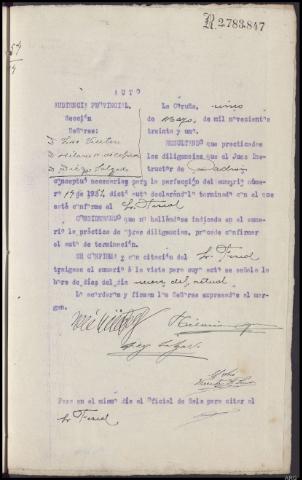 R 2783,847
AUTO
AUDIENCIA PROVINCIAL.
Sección
Señores:
La Coruña, cinco
de mayo de mil novecientos
treinta y uno.
RESULTANDO que practicadas
las diligencias que el Juez Ins-
tructor de
conceptuó necesarias para la perfección del sumario núme-
ro de 1931 dictó auto declarándolo terminado con el que
está conforme el Sr. Fiscal
CONSIDERANDO que no hallándose indicado en el suma-
rio la práctica de otras diligencias, procede confirmar
el auto de terminación.
SE CONFIRMA y con citación del Sr. Fiscal
traigase el sumario a la vista para cuyo acto se señala la
hora de diez del día nueve del actual.
Lo acordaron y firman los Señores expresados al mar-
gen.
Pasa en el mismo día al Oficial de Sala para citar al
Sr. Fiscal